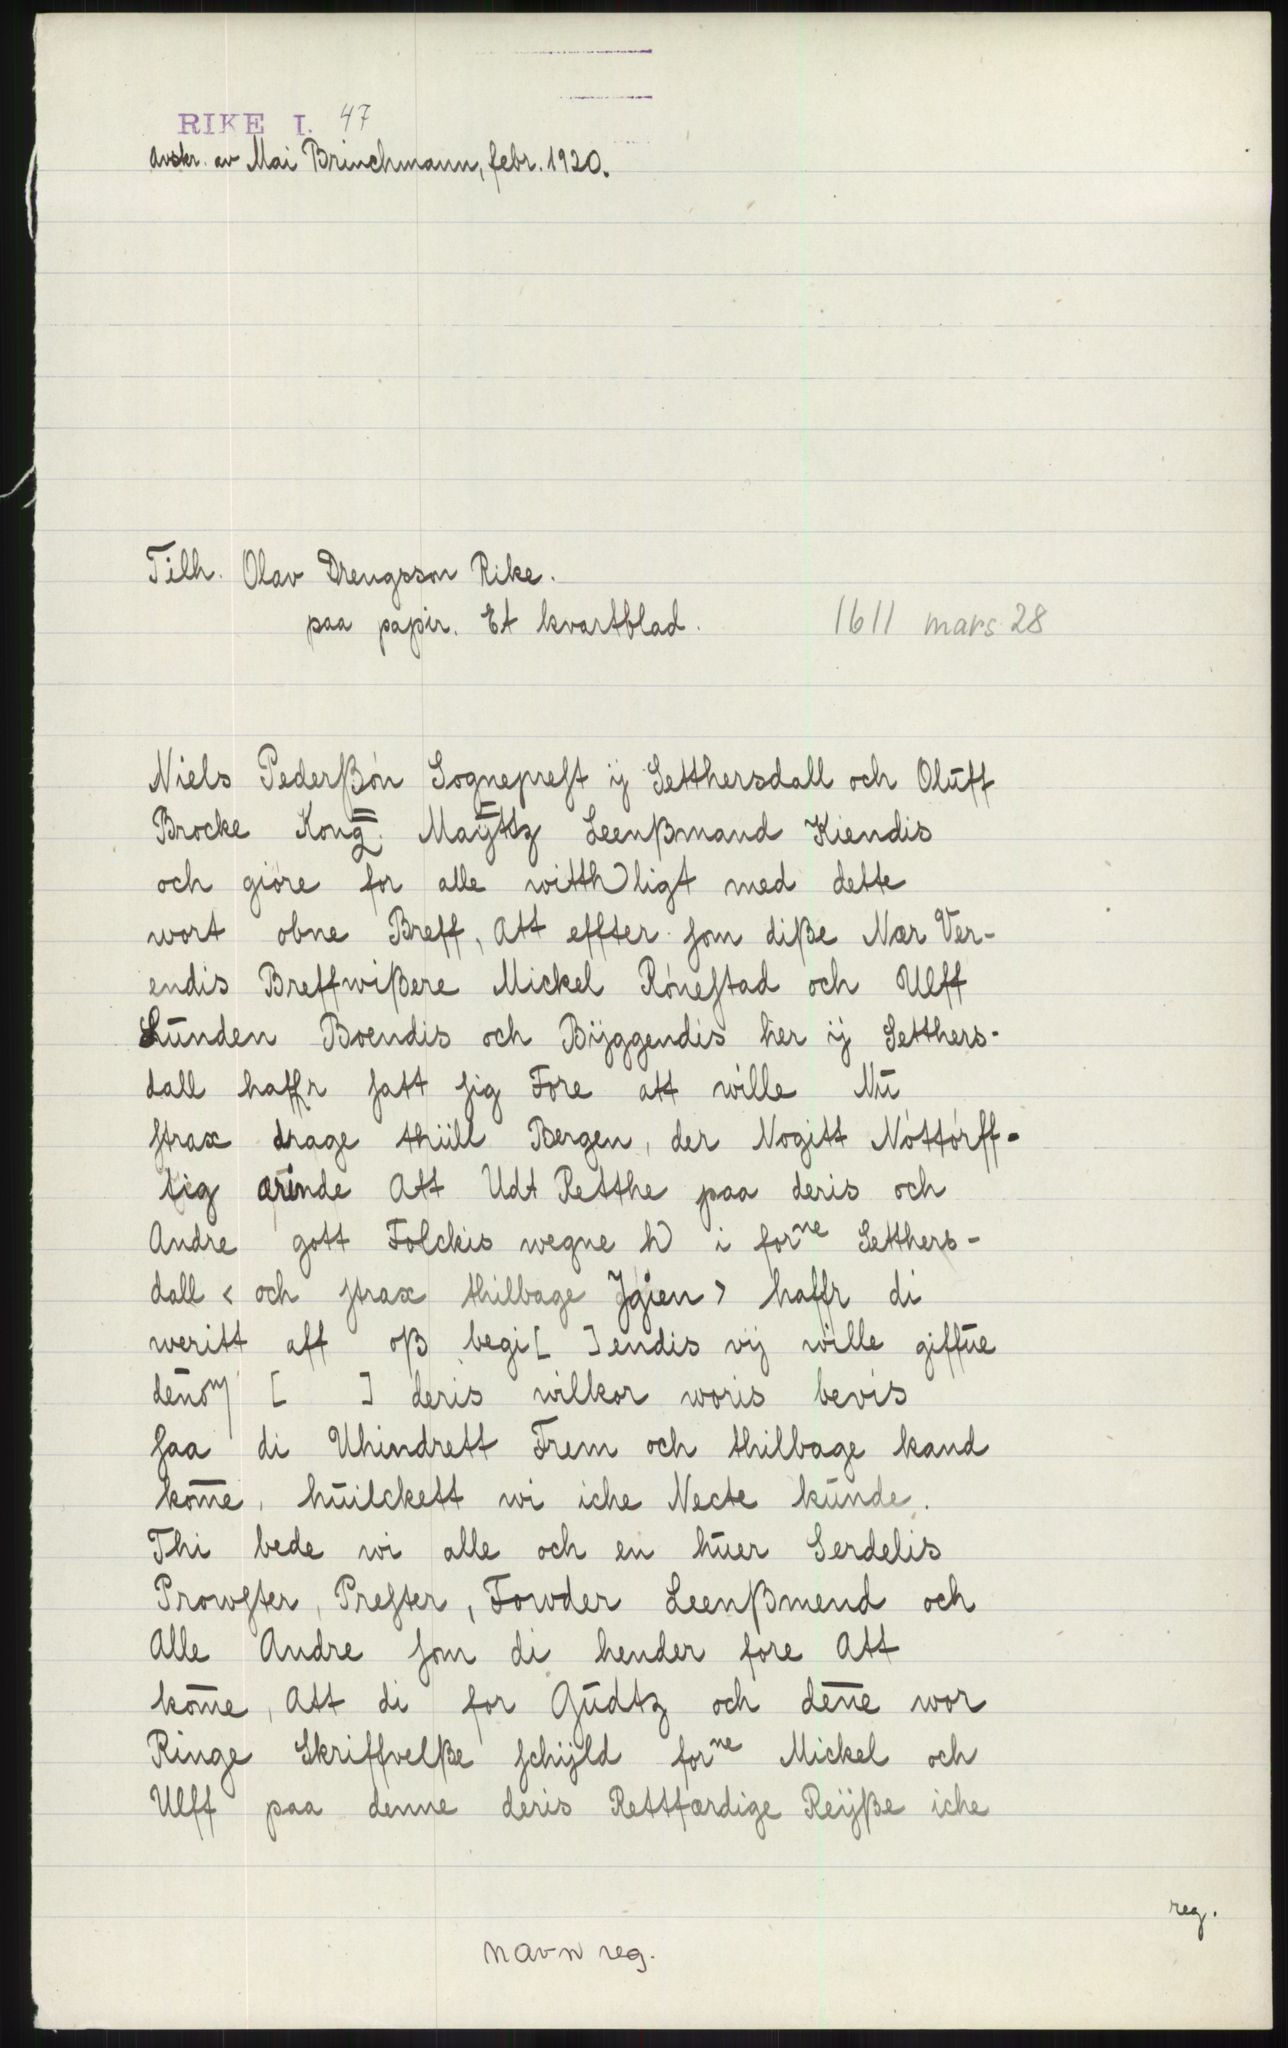 RIKE I. 47
Avskr. av Mai Brinchmann, febr. 1920.
Tilh. Olav Drengsson Rike.
paa papir. Et kvartblad. 1611 mars 28
Niels Pederßón Sogneprest ij Setthersdall och Oluff
Brocke Kong. Mayttz Leenßmand Kiendis
och giøre for alle witthligt med dette
wort obne Breff, Att effter som diße Nær Ver-
endis Breffwißere Mickel Rónestad och Ulff
Lunden Boendis och Bÿggendis her ij Setthers-
dall haffr satt sig Fore att wille Nu
strax drage thiill Bergen, der Nogitt Nóttórff-
tig ærinde Att Udt Retthe paa deris och
Andre gott Folckis wegne h) i forne Setthers-
dall < och strax thilbage Jgien > haffr di
weritt aff oß begi[ ]endis vij wille giffue
denom [ ] deris wilkor woris bevis
saa di Uhindrett Frem och thilbage kand
kom̄e, huilckett wi iche Necte kunde.
Thi bede wi alle och en huer Serdelis
Prowster, Prester, Fowder Leenßmend och
Alle Andre som di hender fore Att
kom̄e, Att di for Gudtz och den̄e wor
Ringe Skriffvelße schÿld forne Mickel och
Ulff paa denne deris Rettfærdige Reÿße iche
reg.
navn reg.